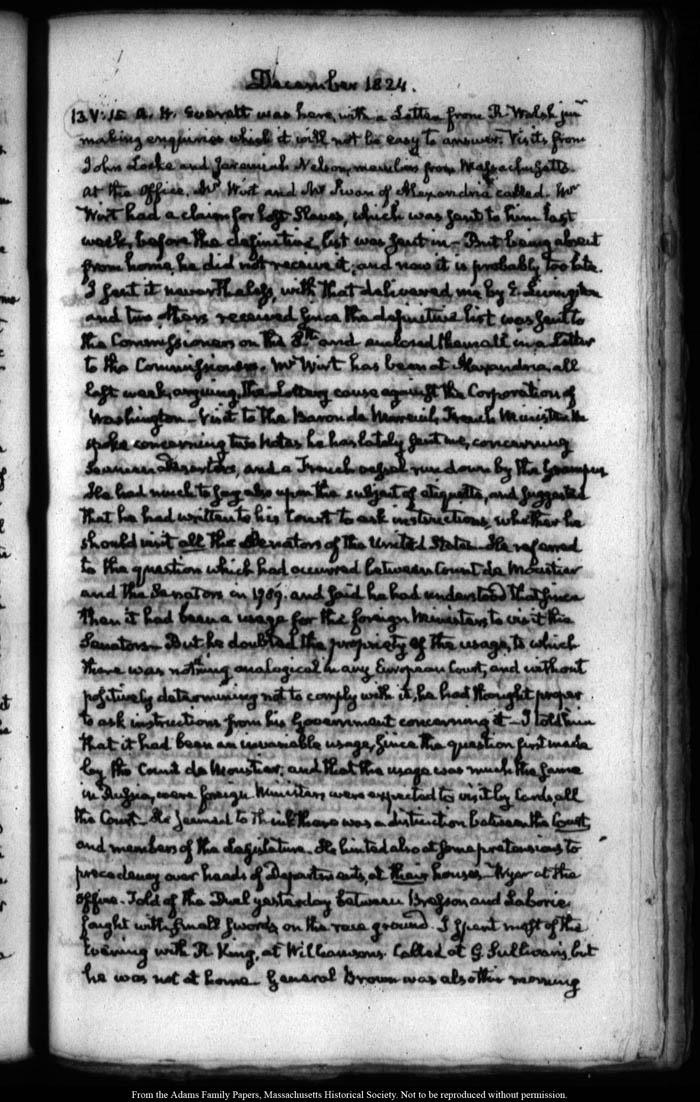 December 1824.
13. V:15 A. H. Everett was here, with a Letter from R. Walsh junr
making enquiries which it will not be easy to answer. Visits from
John Locke and Jeremiah Nelson, members from Massachusetts.
At the Office, Mr Wirt and Mr Swan of Alexandria called. Mr
Wirt had a claim for lost Slaves, which was sent to him last
week, before the definitive list was sent in— But being absent
from home, he did not receive it, and now it is probably too late.
I sent it nevertheless, with that delivered me by E. Livingston
and two others received since the definitive list was sent to
the Commissioners on the 8th and enclosed them all in a Letter
to the Commissioners. Mr Wirt has been at Alexandria, all
last week, arguing the Lottery cause against the Corporation of
Washington— Visit to the Baron de Mareuil, French Minister. He
spoke concerning two Notes he has lately sent me, concerning
Seamen Deserters, and a French vessel run down by the Grampus
He had much to say also upon the subject of etiquette, and suggested
that he had written to his Court to ask instructions, whether he
should visit all the Senators of the United States. He referred
to the question which had occurred between Count de Moustier
and the Senators in 1789. and said he had understood that since
then it had been a usage for the foreign Ministers to visit the
Senators— But he doubted the propriety of the usage, to which
there was nothing analogical in any European Court, and without
positively determining not to comply with it, he had thought proper
to ask instructions from his Government concerning it— I told him
that it had been an invariable usage, since the question first made
by the Count de Moustier; and that the usage was much the same
in Russia, where foreign Ministers were expected to visit by Cards all
the Court— He seemed to think there was a distinction between the Court
and members of the Legislature. He hinted also at some pretensions to
precedency over heads of Departments, at their houses— Wyer at the
office. Told of the Duel yesterday between Bresson and Laborie
fought with small swords on the race ground. I spent most of the
Evening with R. King, at Williamson's. Called at G. Sullivan's, but
he was not at home. General Brown was also this morning
From the Adams Family Papers, Massachusetts Historical Society. Not to be reproduced without permission.